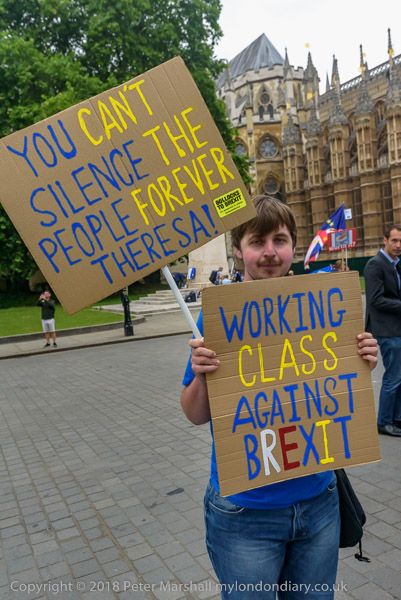 YOU CAN'T
SILENCE THE
PEOPLE FOREVER
THERESA!
BOLLOCKS
TO BREXIT
WORKING
CLASS
AGAINST
BREXIT
Copyright © 2018 Peter Marshall mylondondiary.co.uk